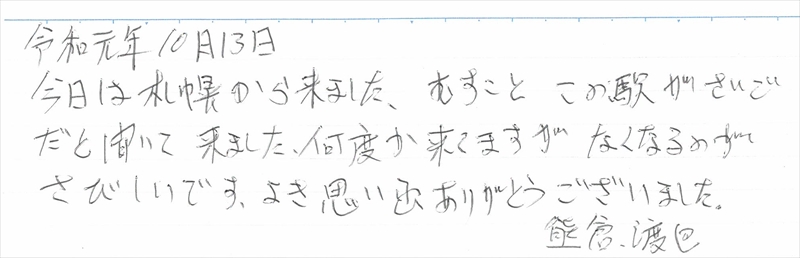 令和元年10月13日
今日は札幌から来ました、むすこと この駅がさいご
だと聞いて 来ました、何度か来てますが なくなるのが
さびしいです、よき思い出ありがとうございました。
熊倉、渡辺